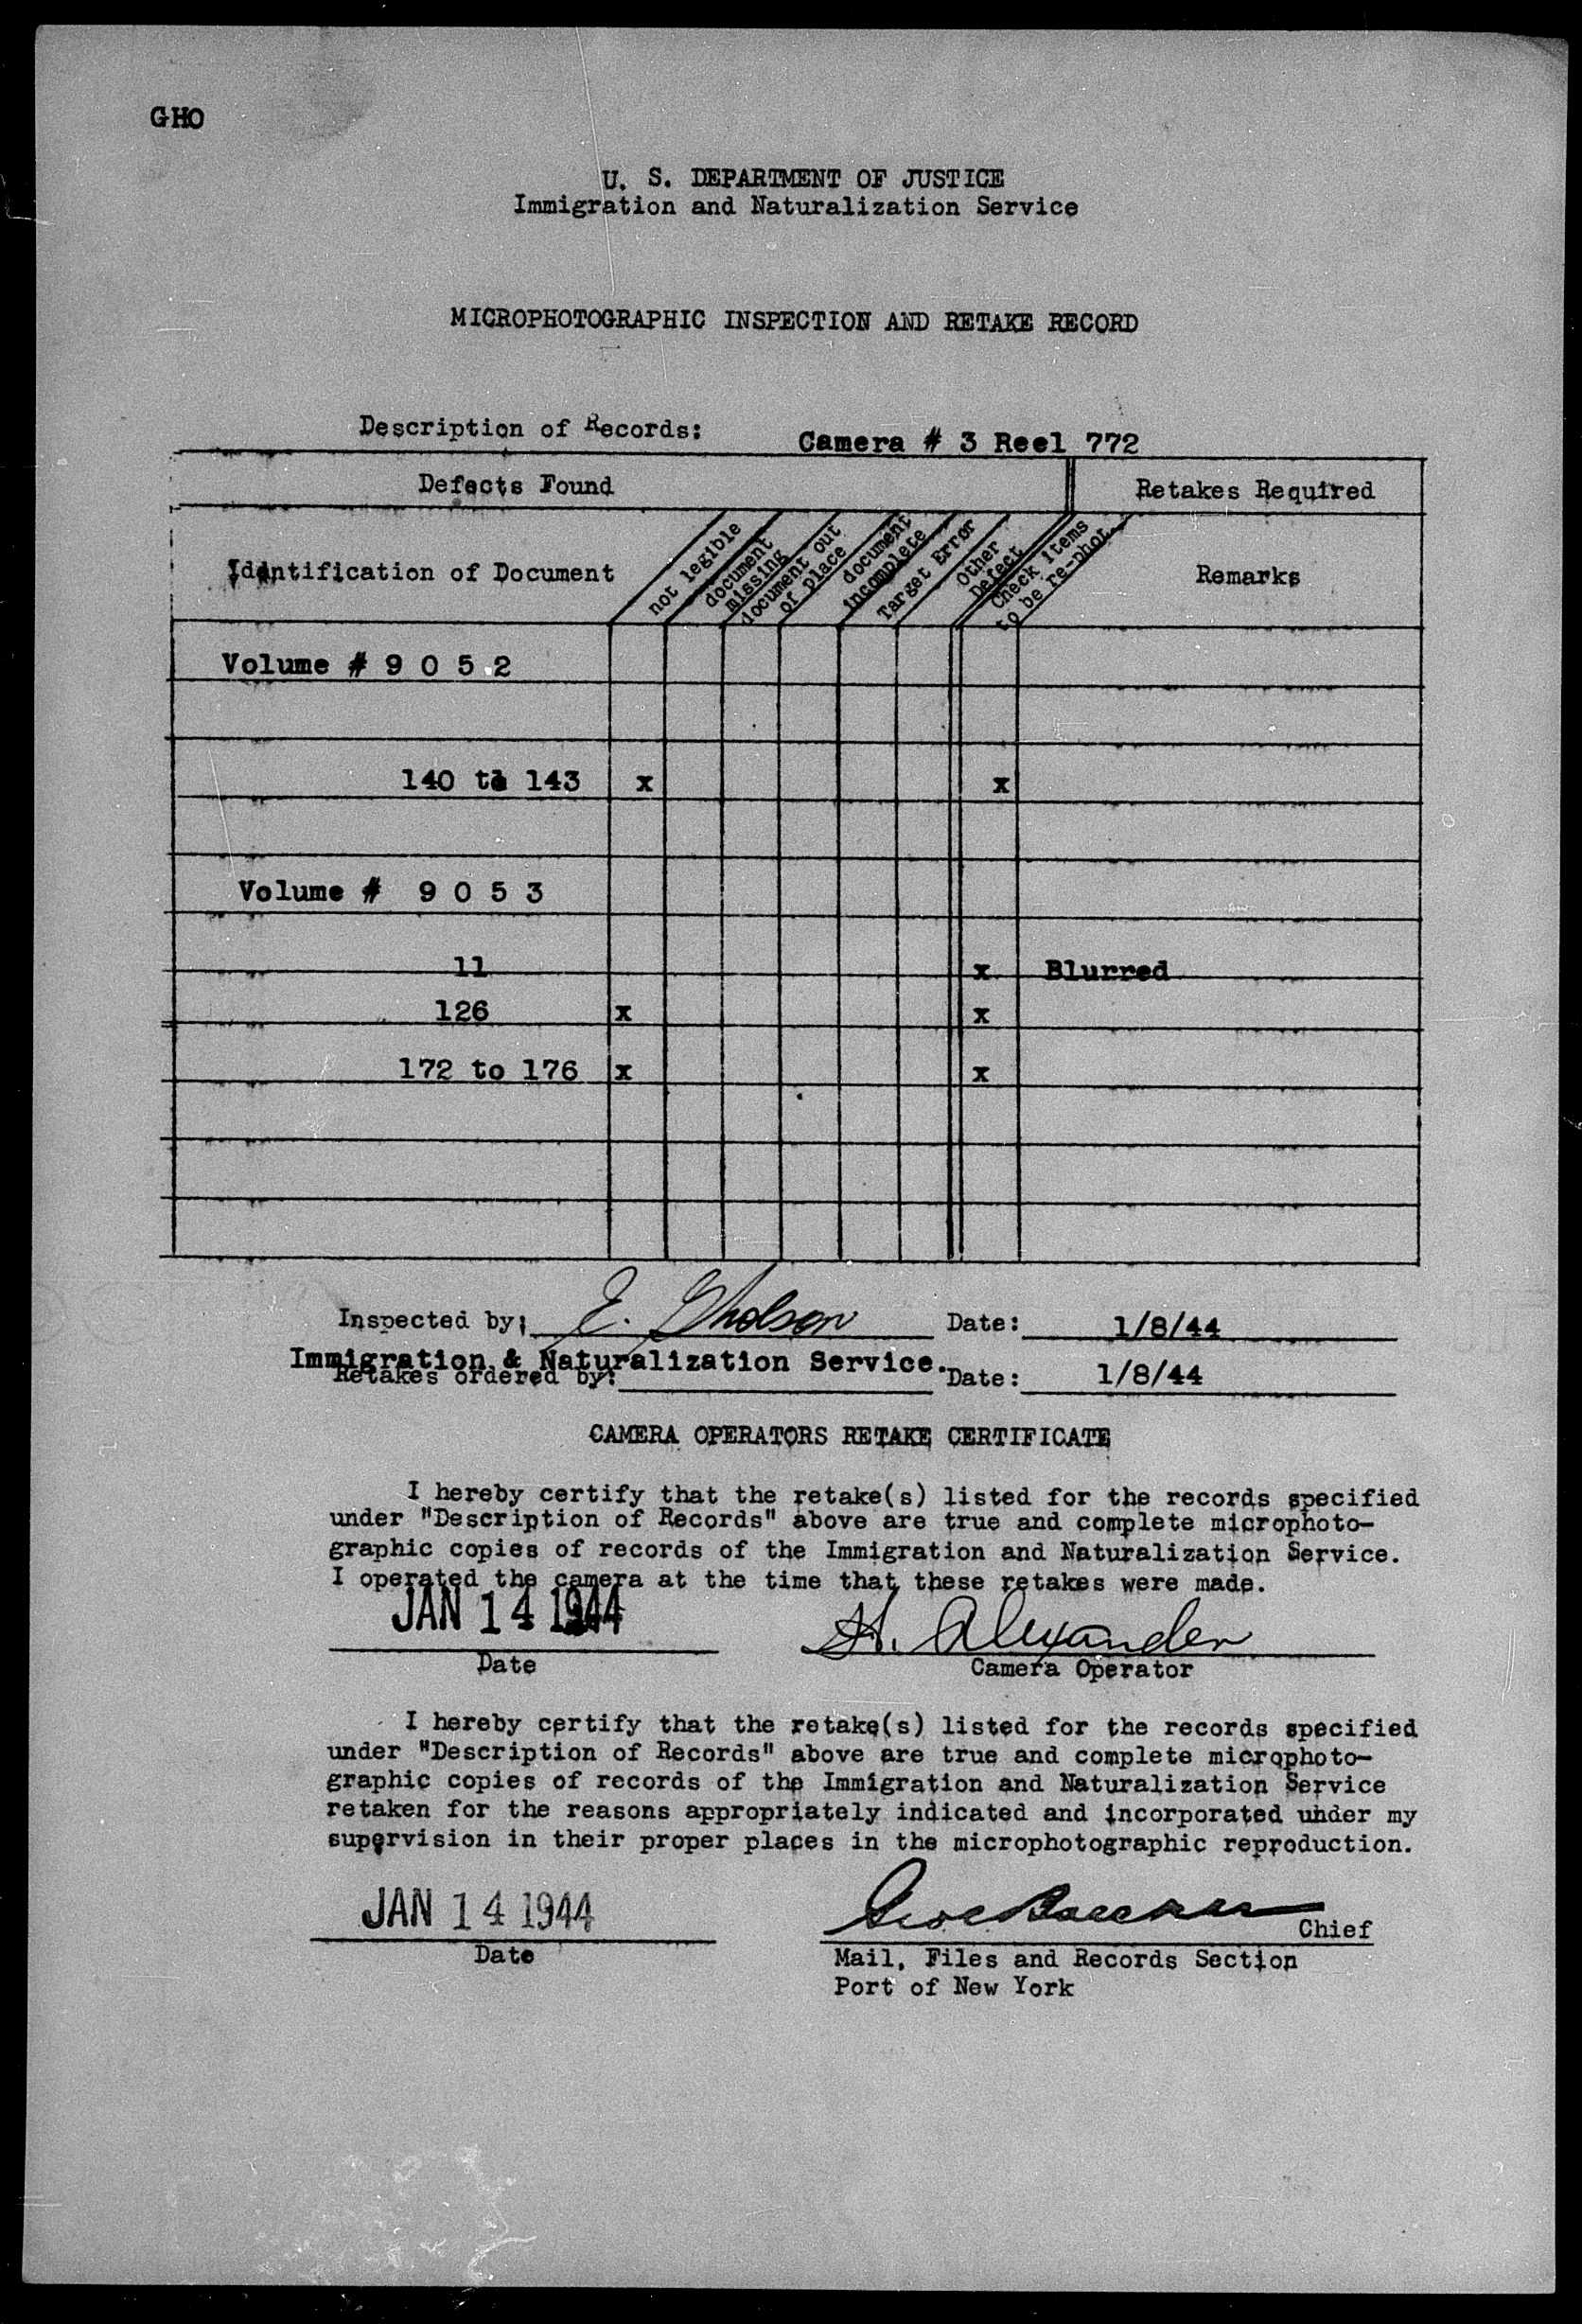 GHO
U. S. DEPARTMENT OF JUSTICE
Immigration and Naturalization Service
MICROPHOTOGRAPHIC INSPECTION AND RETAKE RECORD
Description of Records: Camera # 3 Reel 772
Defects Found Retakes Required
Identification of Document
not legible
document missing
document out of place
document incomplete
Target Error
Other Defect
Check items to be re-phot.
Remarks
Volume # 9 0 5 2
140 to 143 x x
Volume # 9 0 5 3
11 x Blurred
126 x x
172 to 176 x x
Inspected by: E. Gholson Date: 1/8/44
Immigration & Naturalization Service.
Retakes ordered by: Date: 1/8/44
CAMERA OPERATORS RETAKE CERTIFICATE
I hereby certify that the retake(s) listed for the records specified
under "Description of Records" above are true and complete microphoto-
graphic copies of records of the Immigration and Naturalization Service.
I operated the camera at the time that these retakes were made.
JAN 14 1944 H. Alexander
Date Camera Operator
I hereby certify that the retake(s) listed for the records specified
under "Description of Records" above are true and complete microphoto-
graphic copies of records of the Immigration and Naturalization Service
retaken for the reasons appropriately indicated and incorporated under my
supervision in their proper places in the microphotographic reproduction.
JAN 14 1944
Chief
Date Mail, Files and Records Section
Port of New York